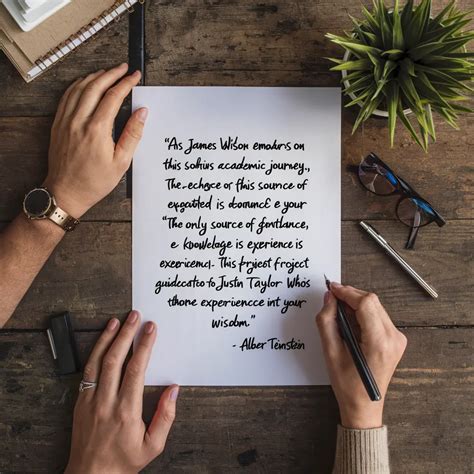 "As James Wilson emdurs on
this sohius academic journey.,
The echgce or this source of
expatited is doronncf e your
"The only source of fentlance,
e knowledge is experience is
exericmcl. This frriest froject
guidccateo to Justin Taylor Whos
thone experiencce int your
wisdom."
- Alber Teinstein